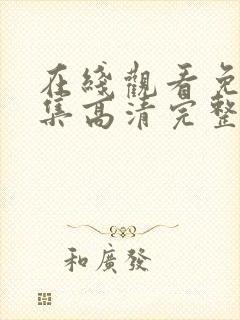 在綫觀看免
集高清完整
和廣發